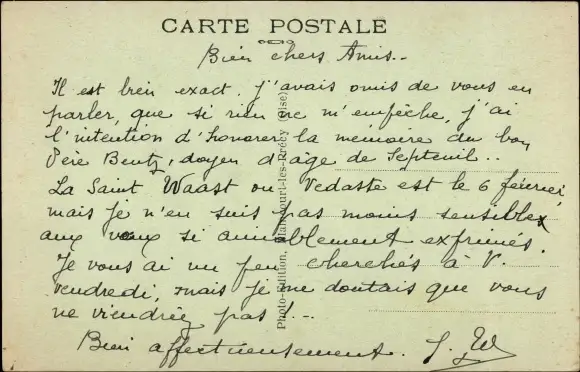 CARTE POSTALE
Bien chers Amis..
Il est bien exact, j'avais omis de vous en
parler, que si rien ne m'empêche, j'ai
l'intention d'honorer la mémoire du bon
Père Bentz, doyen d'âge de Septeuil..
La Saint Waast ou Vedaste est le 6 février
mais je n'en suis pas moins sensible
aux vœux si aimablement exprimés.
Je vous ai un peu cherchés à V.
vendredi, mais je me doutais que vous
ne viendriez pas !..
Bien affectueusement. J. W
Photo-Edition, (Oise)